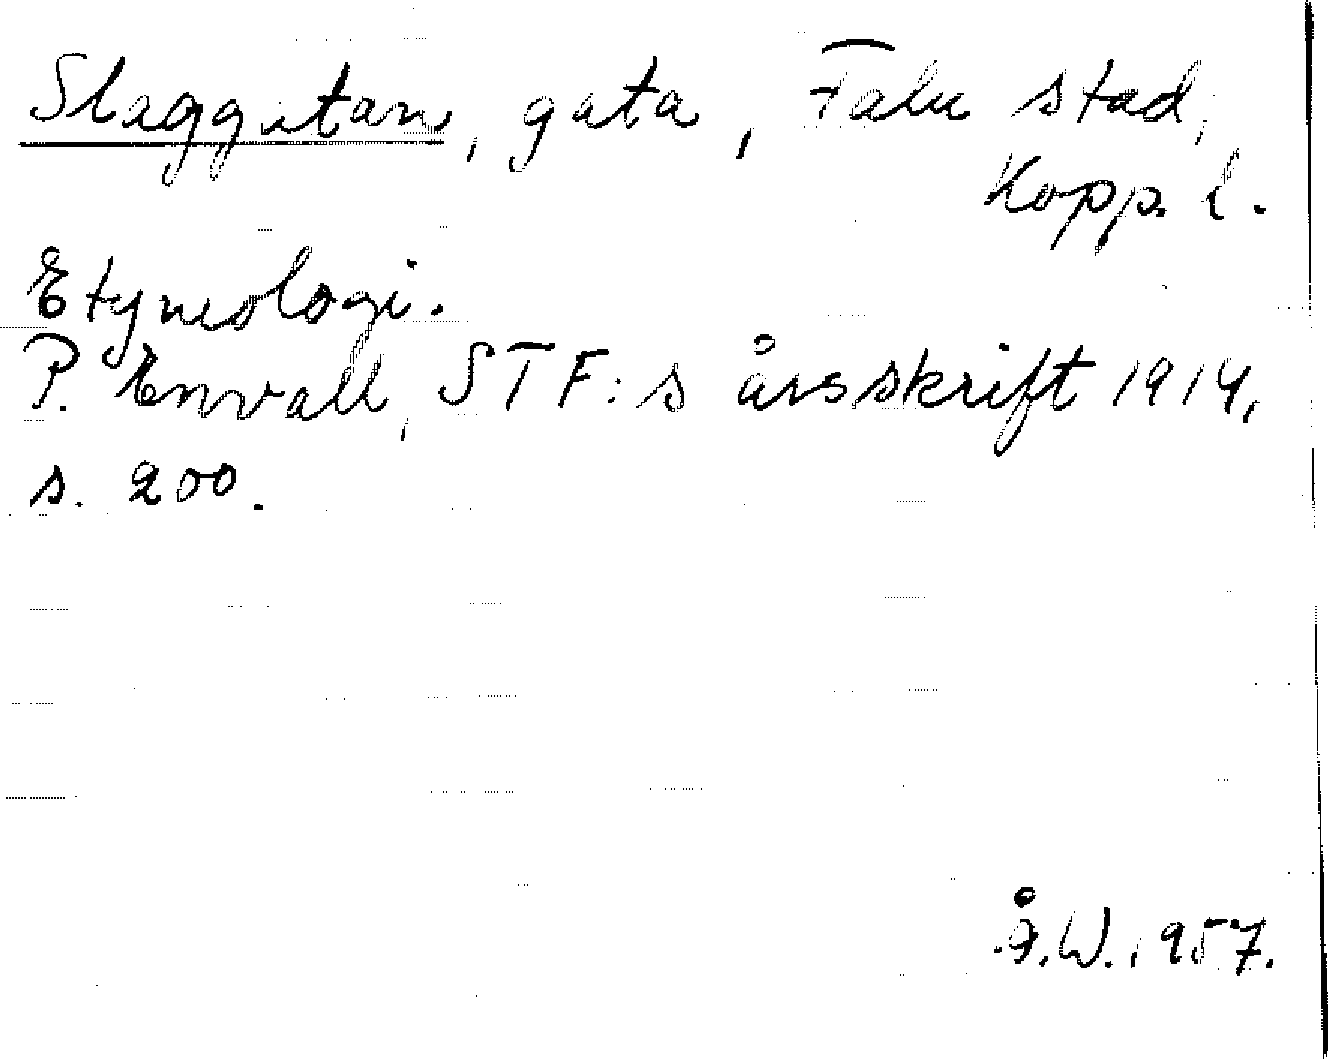 Slaggatan, gata, Falu stad,
Kopp. l.
Etymologi.
P. Envall, STF:s årsskrift 1914,
s. 200.
Å.W. 1957.